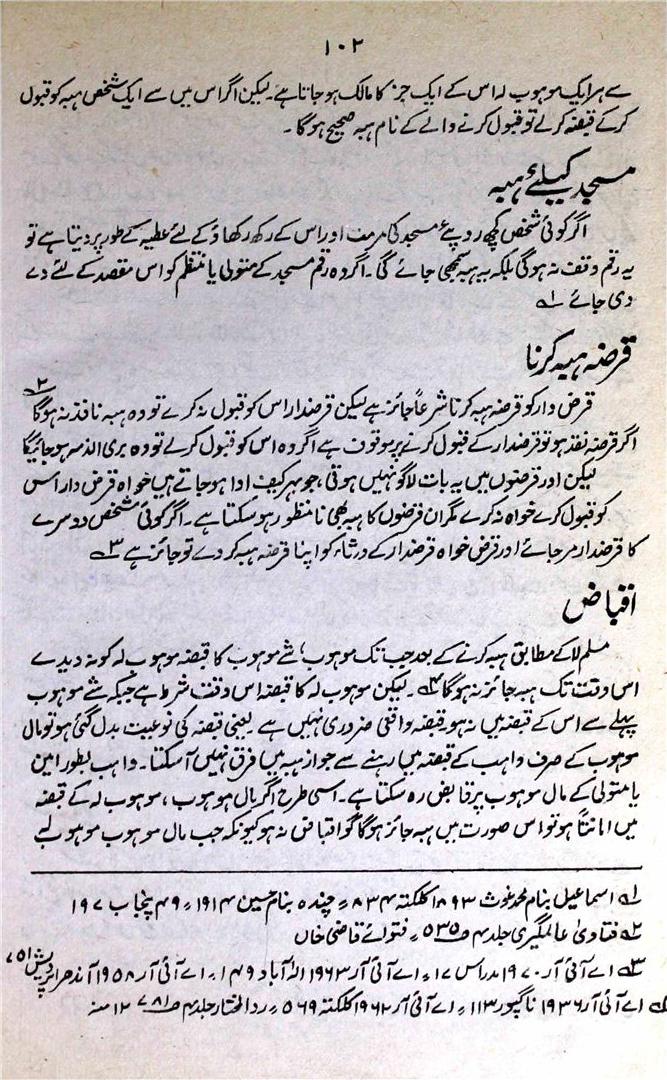 ۱۰۲
سے ہر ایک موہوب لہ اس کے ایک جز کا مالک ہوجاتا ہے۔ لیکن اگر اس میں سے ایک شخص ہبہ کو قبول
کرکے قبضہ کرلے تو قبول کرنے والے کے نام ہبہ صحیح ہوگا۔
مسجد کیلئے ہبہ
اگر کوئی شخص کچھ روپیۓ مسجد کی مرمت اور اس کے رکھ رکھاؤ کے لئے عطیہ کے طور پر دیتا ہے تو
یہ رقم وقف نہ ہوگی بلکہ یہ ہبہ سمجھی جائے گی۔ اگر وہ رقم مسجد کے متولی یا منتظم کو اس مقصد کے لئے دے
دی جائے ۱ے
قرضہ ہبہ کرنا
قرض دار کو قرضہ ہبہ کرنا شرعاً جائز ہے لیکن قرضدار اس کو قبول نہ کرے تو وہ ہبہ نافذ نہ ہوگا ۲ے
اگر قرضہ نقد ہو تو قرضدار کے قبول کرنے پر موقوف ہے اگر وہ اس کو قبول کرلے تو وہ بری الذمہ ہوجائیگا
لیکن اور قرضوں میں یہ بات لاگو نہیں ہوتی، جو بہرکیف ادا ہوجاتے ہیں خواہ قرض دار اس
کو قبول کرے خواہ نہ کرے مگر ان قرضوں کا ہبہ بھی نامنظور ہوسکتا ہے۔ اگر کوئی شخص دوسرے
کا قرضدار مرجائے اور قرض خواہ قرضدار کے ورثاء کو اپنا قرضہ ہبہ کردے تو جائز ہے ۳ے
اقباض
مسلم لا کے مطابق ہبہ کرنے کے بعد جب تک موہوب، شے موہوب کا قبضہ موہوب لہ کو نہ دیدے
اس وقت تک ہبہ جائز نہ ہوگا ۴ے۔ لیکن موہوب لہ کا قبضہ اس وقت شرط ہے جبکہ شے موہوب
پہلے سے اس کے قبضہ میں نہ ہو۔ قبضہ واقعی ضروری نہیں ہے یعنی قبضہ کی نوعیت بدل گئی ہو تو مال
موہوب کے صرف واہب کے قبضہ میں رہنے سے جواز ہبہ میں فرق نہیں آسکتا۔ واہب بطور امین
یا متولی کے مال موہوب پر قابض رہ سکتا ہے۔ اسی طرح اگر مال موہوب، موہوب لہ کے قبضہ
میں امانتاً ہو تو اس صورت میں ہبہ جائز ہوگا گو اقباض نہ ہو کیونکہ جب مال موہوب موہوب لہٗ
۱ے اسماعیل بنام محمد غوث ۱۸۹۳ کلکتہ ۸۳۴ ؍ چندہ بنام حسین ۱۹۱۴ ؍ ۴۹ پنجاب ۱۹۷
۲ے فتاویٰ عالمگیری جلد ۴ ص ۵۳۵ ؍ فتوائے قاضی خاں
۳ے اے آئی آر ۱۹۷۰ مدراس ۱۷ ؍ اے آئی آر ۱۹۶۳ الہ آباد ۱۴۹ ؍ اے آئی آر ۱۹۵۸ آندھرا پردیش ۷۵۱
اے آئی آر ۱۹۳۶ ناگپور ۱۱۳ ؍ اے آئی آر ۱۹۶۲ کلکتہ ۵۶۹ ؍ رد المختار جلد ۴ ص ۷۸۱ ۱۲ منہ